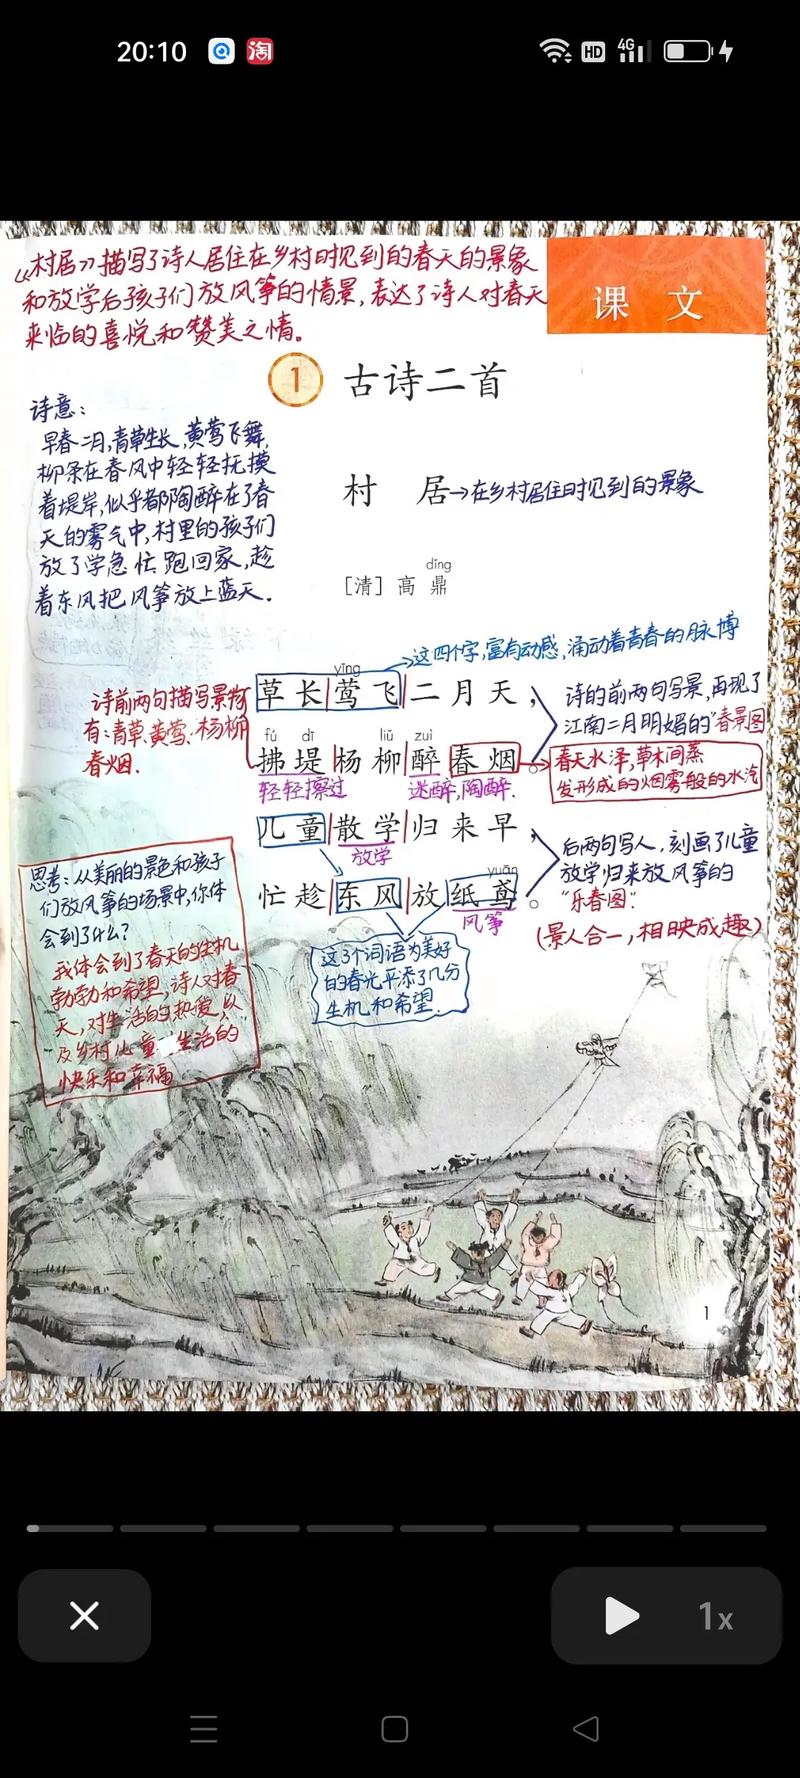 20:10
淘
HD
4G
《村居》描写了诗人居住在乡村时见到的春天的景象
和放学后孩子们放风筝的情景,表达了诗人对春天
来临的喜悦和赞美之情。
课 文
1 古诗二首
诗意:
早春二月,青草生长,黄莺飞舞,
柳条在春风中轻轻抚摸
着堤岸,似乎都陶醉在了春
天的雾气中,村里的孩子们
放了学急忙跑回家,趁
着东风把风筝放上蓝天.
村 居→在乡村居住时见到的景象
dǐng
[清] 高 鼎
这四个字,富有动感,涌动着青春的脉博
yīng
草长|莺飞|二月天,
诗前两句描写景物
有:青草、黄莺、杨柳
春烟.
诗的前两句写景,再现了
江南二月明媚的"春景图
fú dī liǔ zuì
拂堤杨柳|醉|春烟。
轻轻擦过 迷醉,陶醉.
春天水泽,草木间蒸
发形成的烟雾般的水汽
儿童|散学|归来早,
放学
yuān
忙趁|东风|放|纸鸢。
风筝
后两句写人,刻画了儿童
放学归来放风筝的
"乐春图"
(景人合一,相映成趣)
这3个词语为美好
的春光平添了几分
生机和希望.
思考:从美丽的景色和孩子
们放风筝的场景中,你体
会到了什么?
我体会到了春天的生机
勃勃和希望,诗人对春
天,对生活的热爱,以
及乡村儿童 生活的
快乐和幸福
1
1x